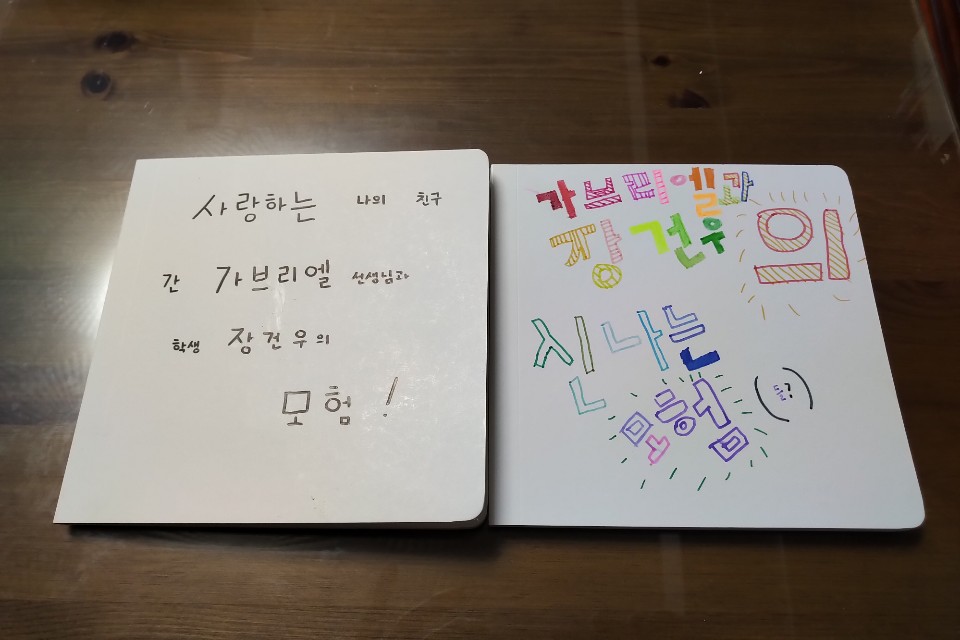 사랑하는 나의 친구
간 가브리엘 선생님과
학생 장건우의
모험!
가브리엘과
장건우의
신나는
모험